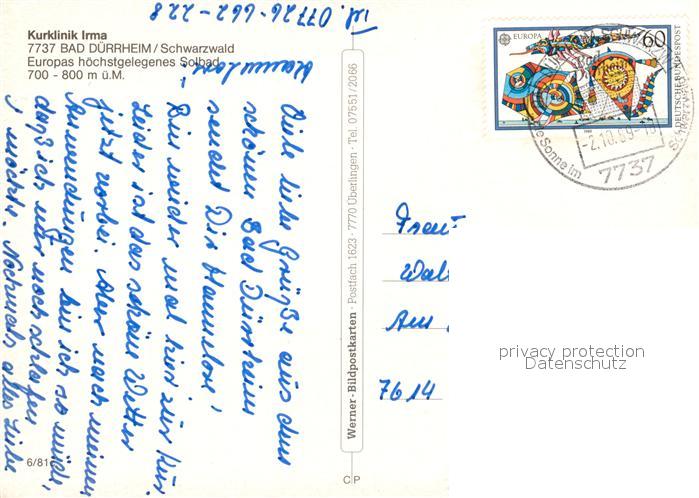 Kurklinik Irma
7737 BAD DÜRRHEIM / Schwarzwald
Europas höchstgelegenes Solbad
700 - 800 m ü.M.
Tel. 07726-662-228
Hannelore
Viele liebe Grüße aus dem
schönen Bad Dürrheim
sendet Dir Hannelore!
Bin wieder mal hier zur Kur.
Leider ist das schöne Wetter
jetzt vorbei. Aber nach meinen
Anwendungen bin ich so müde,
daß ich nur noch schlafen
möchte. Nochmals alles Liebe
6/81
Werner-Bildpostkarten · Postfach 1623 · 7770 Überlingen · Tel. 07551/2066
C P
EUROPA
60
DEUTSCHE BUNDESPOST
-2.10.89-
Sonne im
7737
Frau
Am
7614
privacy protection
Datenschutz